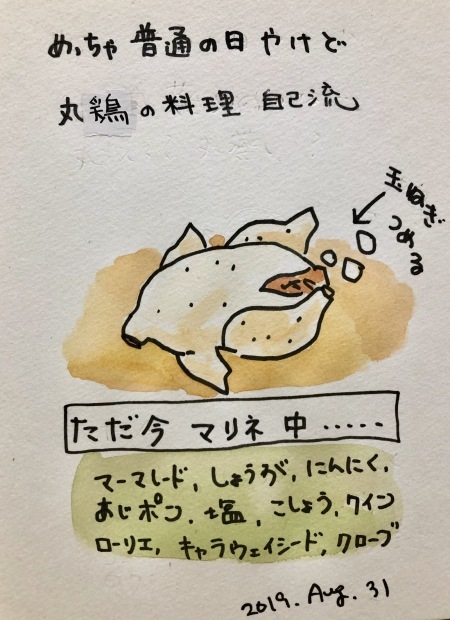 めっちゃ普通の日やけど
丸鶏の料理 自己流
玉ねぎ
つめる
ただ今 マリネ中.....
マーマレード, しょうが, にんにく,
あじポン, 塩, こしょう, クイン
ローリエ, キャラウェイシード, クローブ
2019. Aug. 31